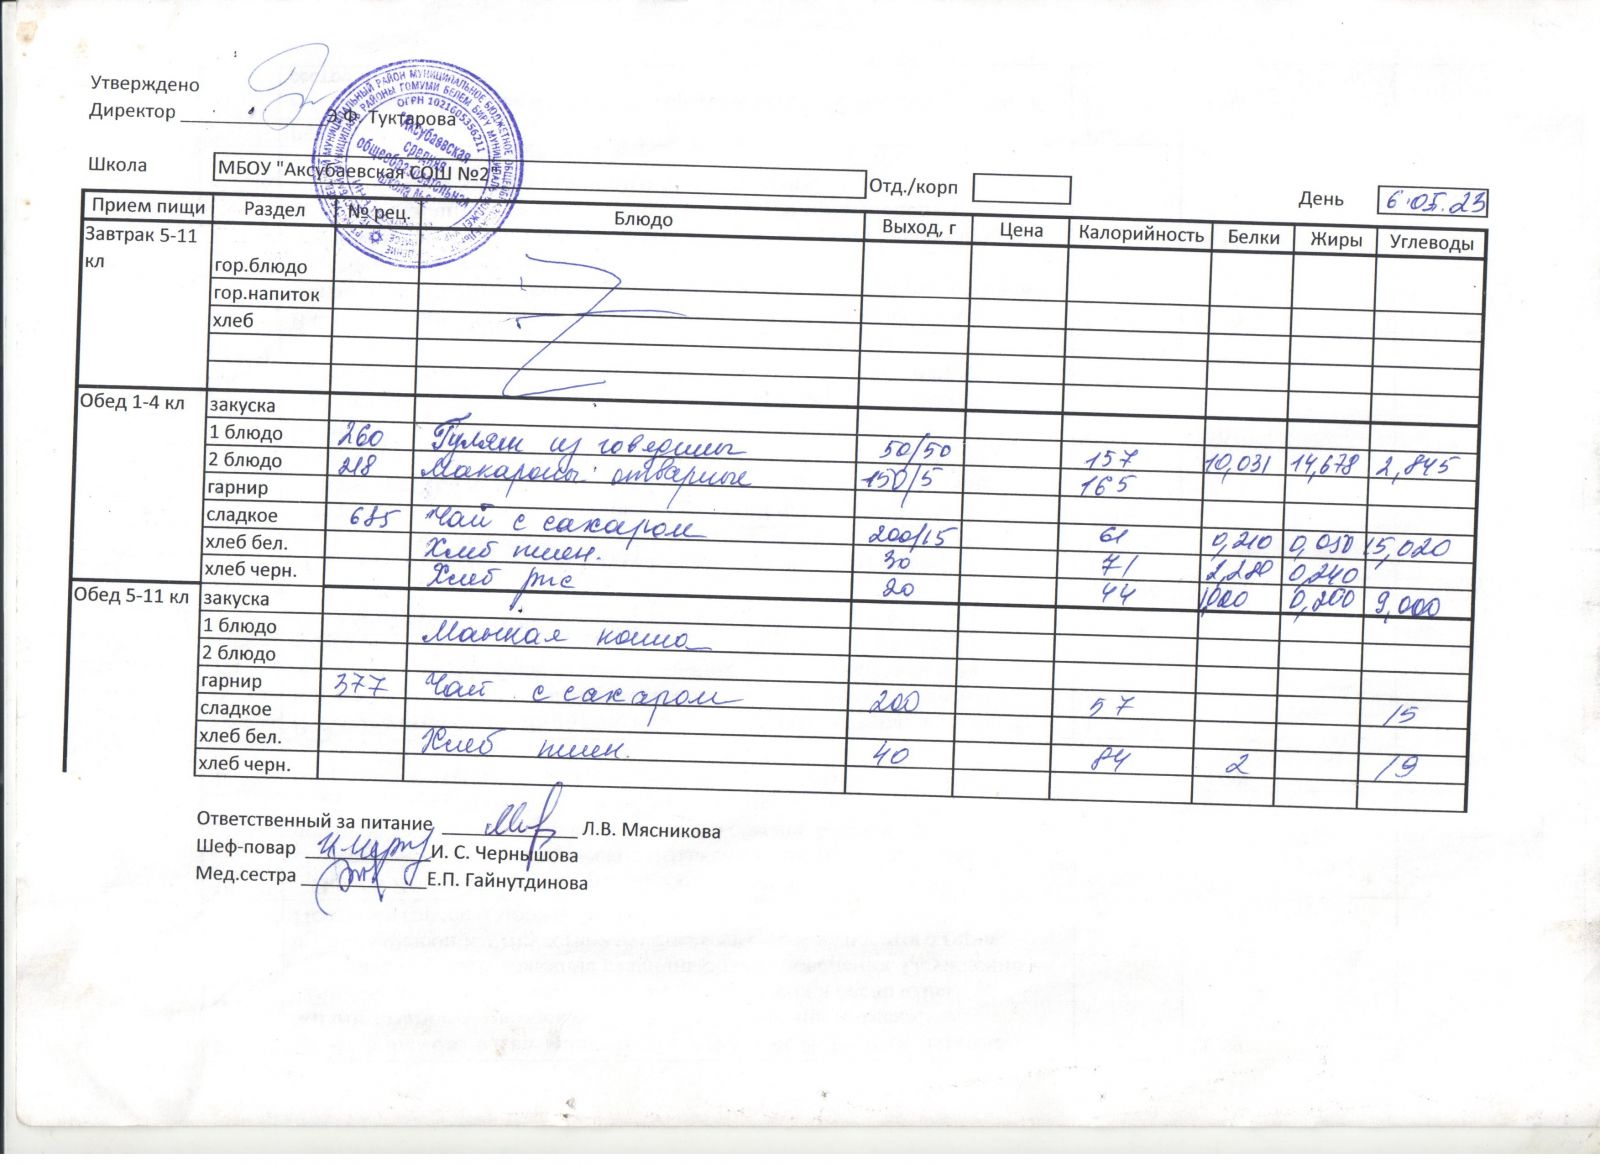 Утверждено
Директор Э.Ф. Туктарова
ОГРН 1021605356211
"Аксубаевская
средняя
общеобразовательная
школа №2"
Школа МБОУ "Аксубаевская СОШ №2 Отд./корп День 6.05.23
Прием пищи Раздел № рец. Блюдо Выход, г Цена Калорийность Белки Жиры Углеводы
Завтрак 5-11 кл
гор.блюдо
гор.напиток
хлеб
Обед 1-4 кл закуска
1 блюдо 260 Гуляш из говядины 50/50 157 10,031 14,678 2,845
2 блюдо 218 Макароны отварные 150/5 165
гарнир
сладкое 685 Чай с сахаром 200/15 61 0,210 0,050 15,020
хлеб бел. Хлеб пшен. 30 71 2,280 0,240
хлеб черн. Хлеб рж 20 44 0,200 9,000
Обед 5-11 кл закуска
1 блюдо Манная каша
2 блюдо
гарнир 377 Чай с сахаром 200 57 15
сладкое
хлеб бел. Хлеб пшен. 40 84 2 19
хлеб черн.
Ответственный за питание Л.В. Мясникова
Шеф-повар И. С. Чернышова
Мед.сестра Е.П. Гайнутдинова